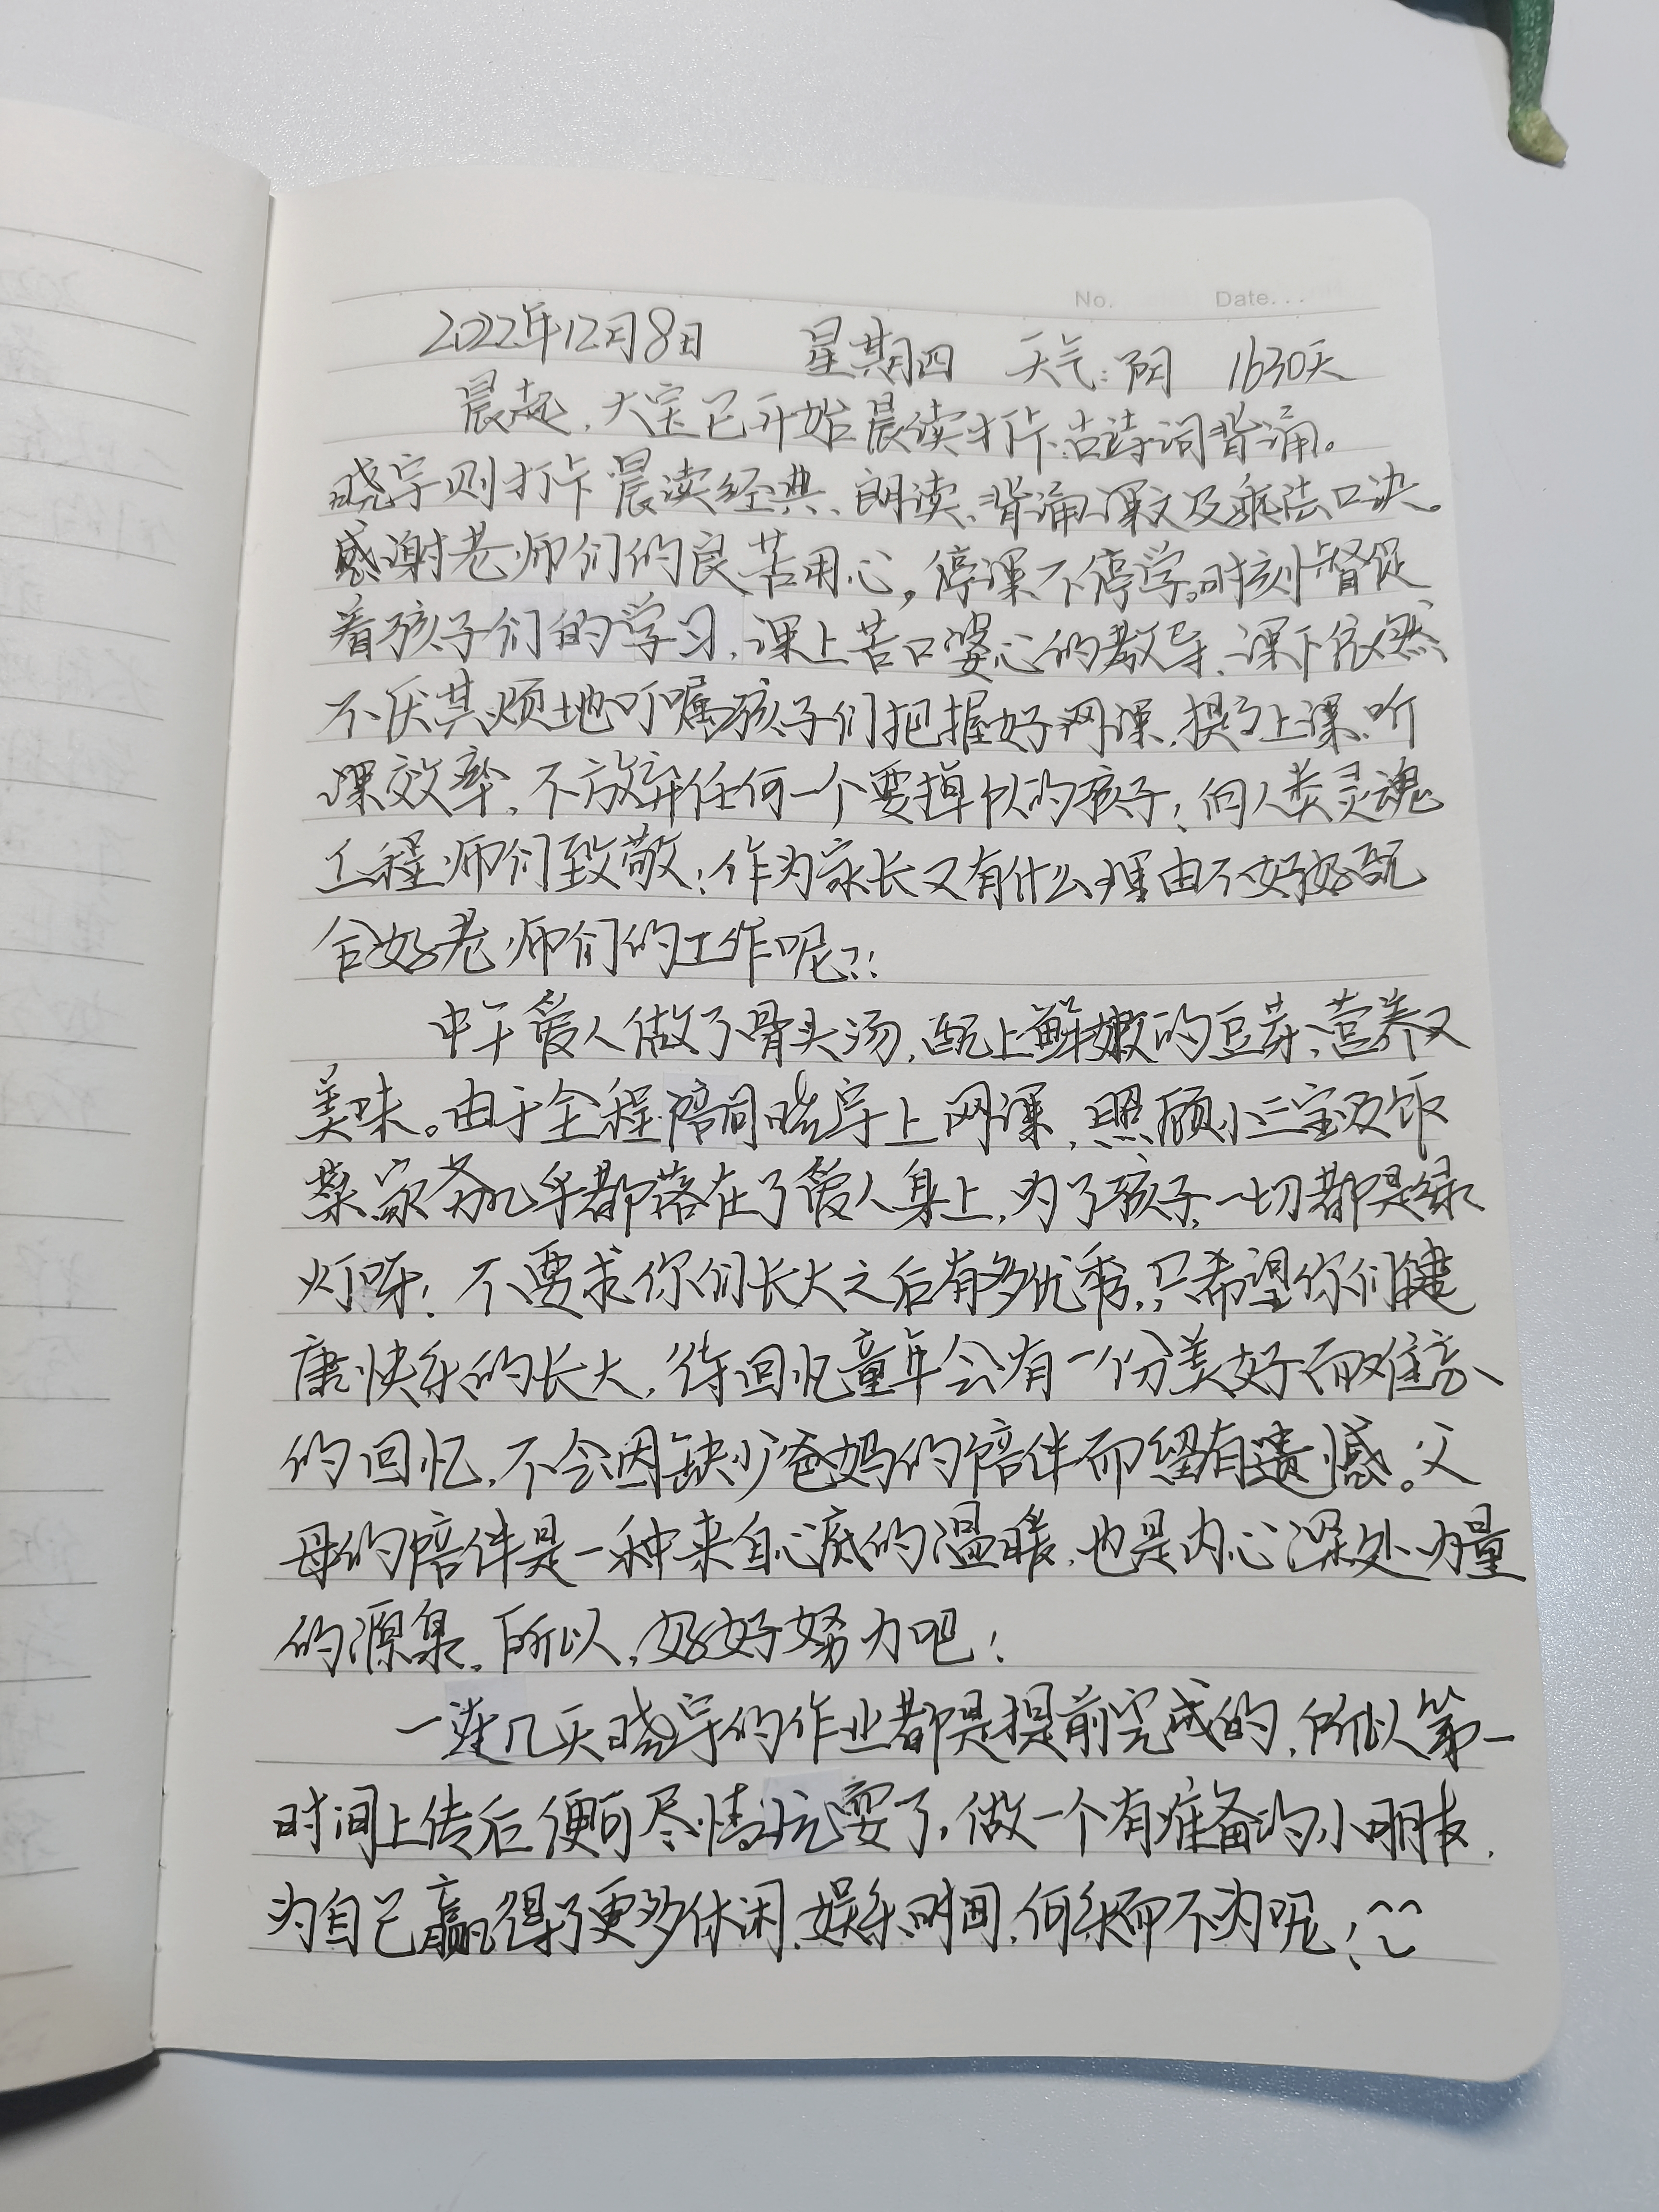 No. Date...
2022年12月8日 星期四 天气:阴 1630天
晨起,大宝已开始晨读打卡:古诗词背诵。
晓宇则打卡晨读经典、朗读、背诵课文及乘法口决。
感谢老师们的良苦用心,停课不停学。时刻督促
着孩子们的学习,课上苦口婆心的教导、课下依然
不厌其烦地叮嘱孩子们把握好网课,提高上课、听
课效率,不放弃任何一个要掉队的孩子;向人类灵魂
工程师们致敬;作为家长又有什么理由不好好配
合好老师们的工作呢?!
中午爱人做了骨头汤,配上鲜嫩的豆芽、营养又
美味。由于全程陪同晓宇上网课,照顾小三宝及饭
菜家务几乎都落在了爱人身上,为了孩子,一切都是绿
灯呀!不要求你们长大之后有多优秀,只希望你们健
康快乐的长大,待回忆童年会有一份美好而难忘
的回忆,不会因缺少爸妈的陪伴而留有遗憾。父
母的陪伴是一种来自心底的温暖,也是内心深处力量
的源泉。所以,好好努力吧!
一连几天晓宇的作业都是提前完成的,所以第一
时间上传后便可尽情玩耍了,做一个有准备的小朋友,
为自己赢得了更多休闲、娱乐时间,何乐而不为呢!